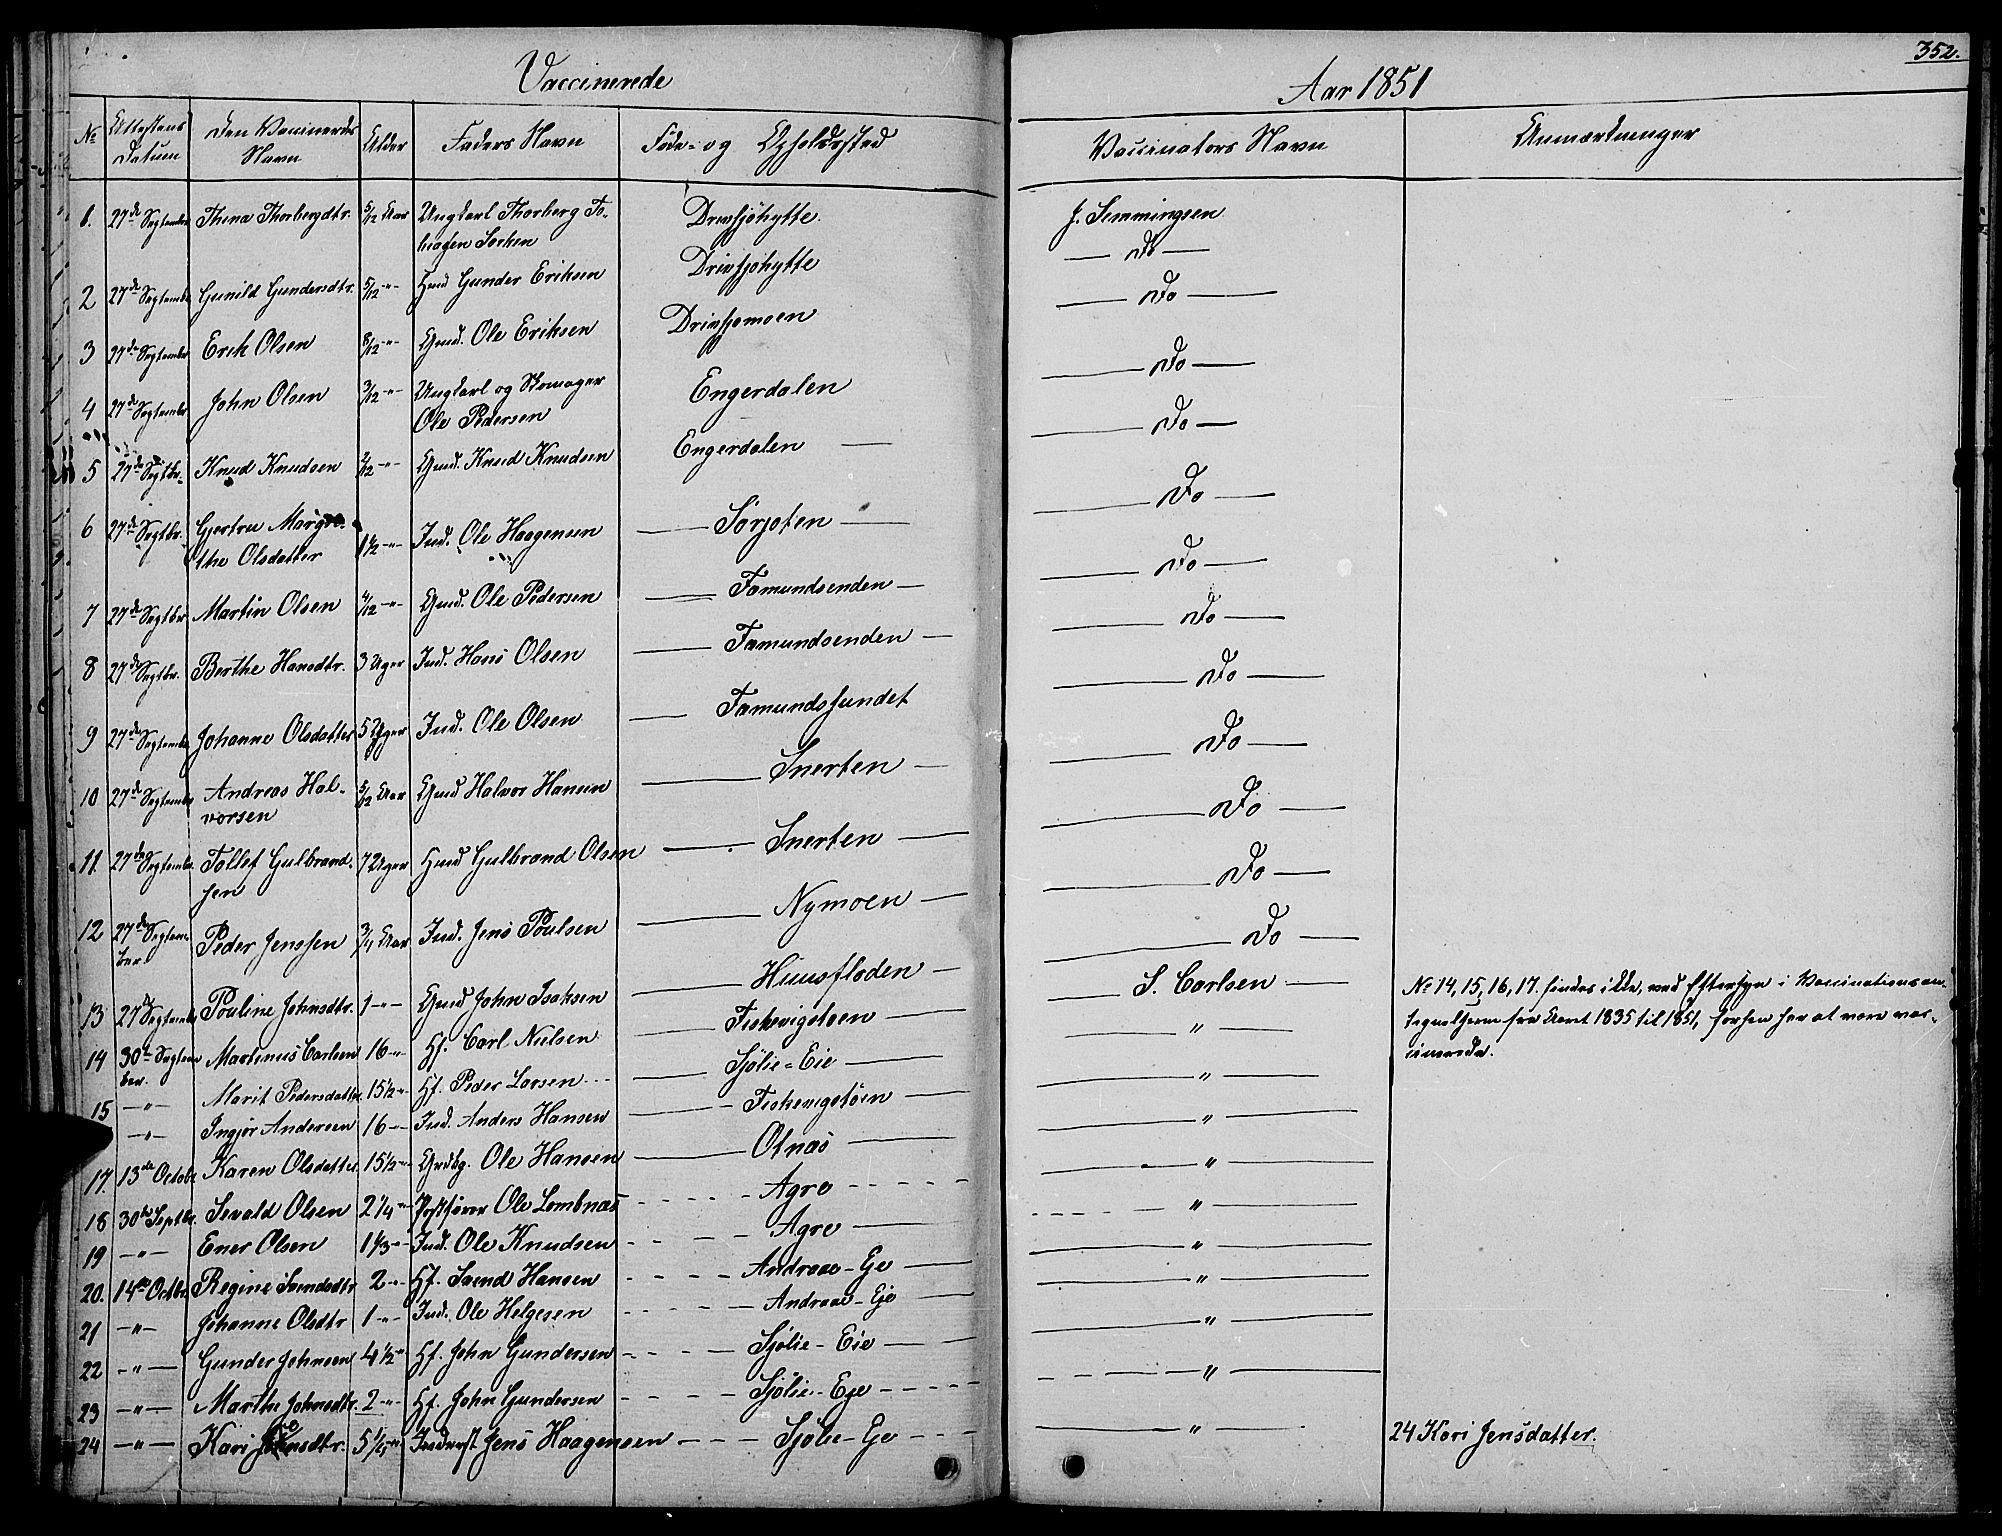 352.
Vaccinerede
Aar 1851
No Attestens Datum Den Vaccineredes Navn Alder Faders Navn Føde- og Opholdssted Vaccinators Navn Anmærkninger
1. 27de September Thina Thorbergdtr. 5/12 Aar Ungkarl Thorberg To- Drevsjöhytte J. Semmingsen
Sorken
— Do —
2 27de Septembr Gunild Gundersdtr. 5/12 -"- Huusmd Gunder Eriksen Drevsjöhytte — Do —
3 27de September Erik Olsen 8/12 -"- Gmd. Ole Eriksen Drevsjømoen — Do —
4 27de Septembr John Olsen 3/12 -"- Ungkarl og Skomager Engerdalen — Do —
Ole Pedersen
5 27de Septbr. Knud Knudsen 2/12 -"- Gmd. Knud Knudsen Engerdalen — — Do —
6 27de Septbr. Gjertru Margre- 1 1/2 -"- Ind. Ole Haagensen — Sørjoten — — Do —
the Olsdatter
7 27de Septbr Martin Olsen 4/12 -"- Gmd. Ole Pedersen — Fæmundsenden — — Do —
8 27de Septbr. Berthe Hansdtr. 3 Uger Ind. Hans Olsen — Fæmundsenden — — Do —
9 27de Septembr Johanne Olsdatter 5 Uger Ind. Ole Olsen — Fæmundssundet — Do —
10 27de Septembr Andreas Hal- 5/12 Aar Gmd Halvor Hansen — Snerten — — Do —
vorsen
11. 27de Septembr Tollef Gulbrand- 7 Uger Hmd Gulbrand Olsen — Snerten — — Do —
sen
12 27de Septem- Peder Jenssen 3/4 Aar Ind. Jens Poulsen — Nymoen — — Do —
ber.
13 27de Septembr Pouline Johnsdtr. 1 -"- Gmd John Isaksen — Huusfloden — — S. Carlsen — No 14, 15, 16, 17. findes ikke, ved Eftersyn i Vaccinationsan-
tegnelserne fra Aaret 1835 til 1851, forhen her at være vac-
cinerede.
14 30te Septem- Martinus Carlsen 16 -"- Hf. Carl Nielsen — Fiskevigstøen — — " —
ber.
15 -"- Marit Pedersdatter 15 1/2 -"- Hf. Peder Larsen — Sjølie-Eie — — " —
-"- Ingjør Andersen 16 -"- Ind. Anders Hansen — Fiskevigstøen — — " —
17. 13de Octobr Karen Olsdatter 15 1/2 -"- Grdbg. Ole Hansen — Otnæs — — " —
18 30te Septbr. Sevald Olsen 2 1/4 -"- Postfører Ole Lombnæs — Agre — — " —
19 -"- Ener Olsen 1 1/3 -"- Ind. Ole Knudsen — Agre — — " —
20. 14de Octbr. Regine Svendsdtr 2 -"- Hf. Svend Hansen — Andraae-Ege — — " —
21 -"- Johanne Olsdtr 1 -"- Ind. Ole Helgesen — Andraae-Eje — — " —
22 -"- Gunder Johnsen 4 1/2 -"- Hf. John Gundersen — Sjølie-Eie — — " —
23 -"- Marthe Johnsdtr. 2 -"- Hf. John Gundersen — Sjølie-Eje — — " —
24 -"- Kari Jensdtr. 5 Inderst Jens Haagensen — Sjølie-Eje — — " — 24 Kari Jensdatter.